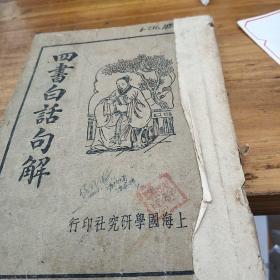 四書白話句解
上海國學研究社印行